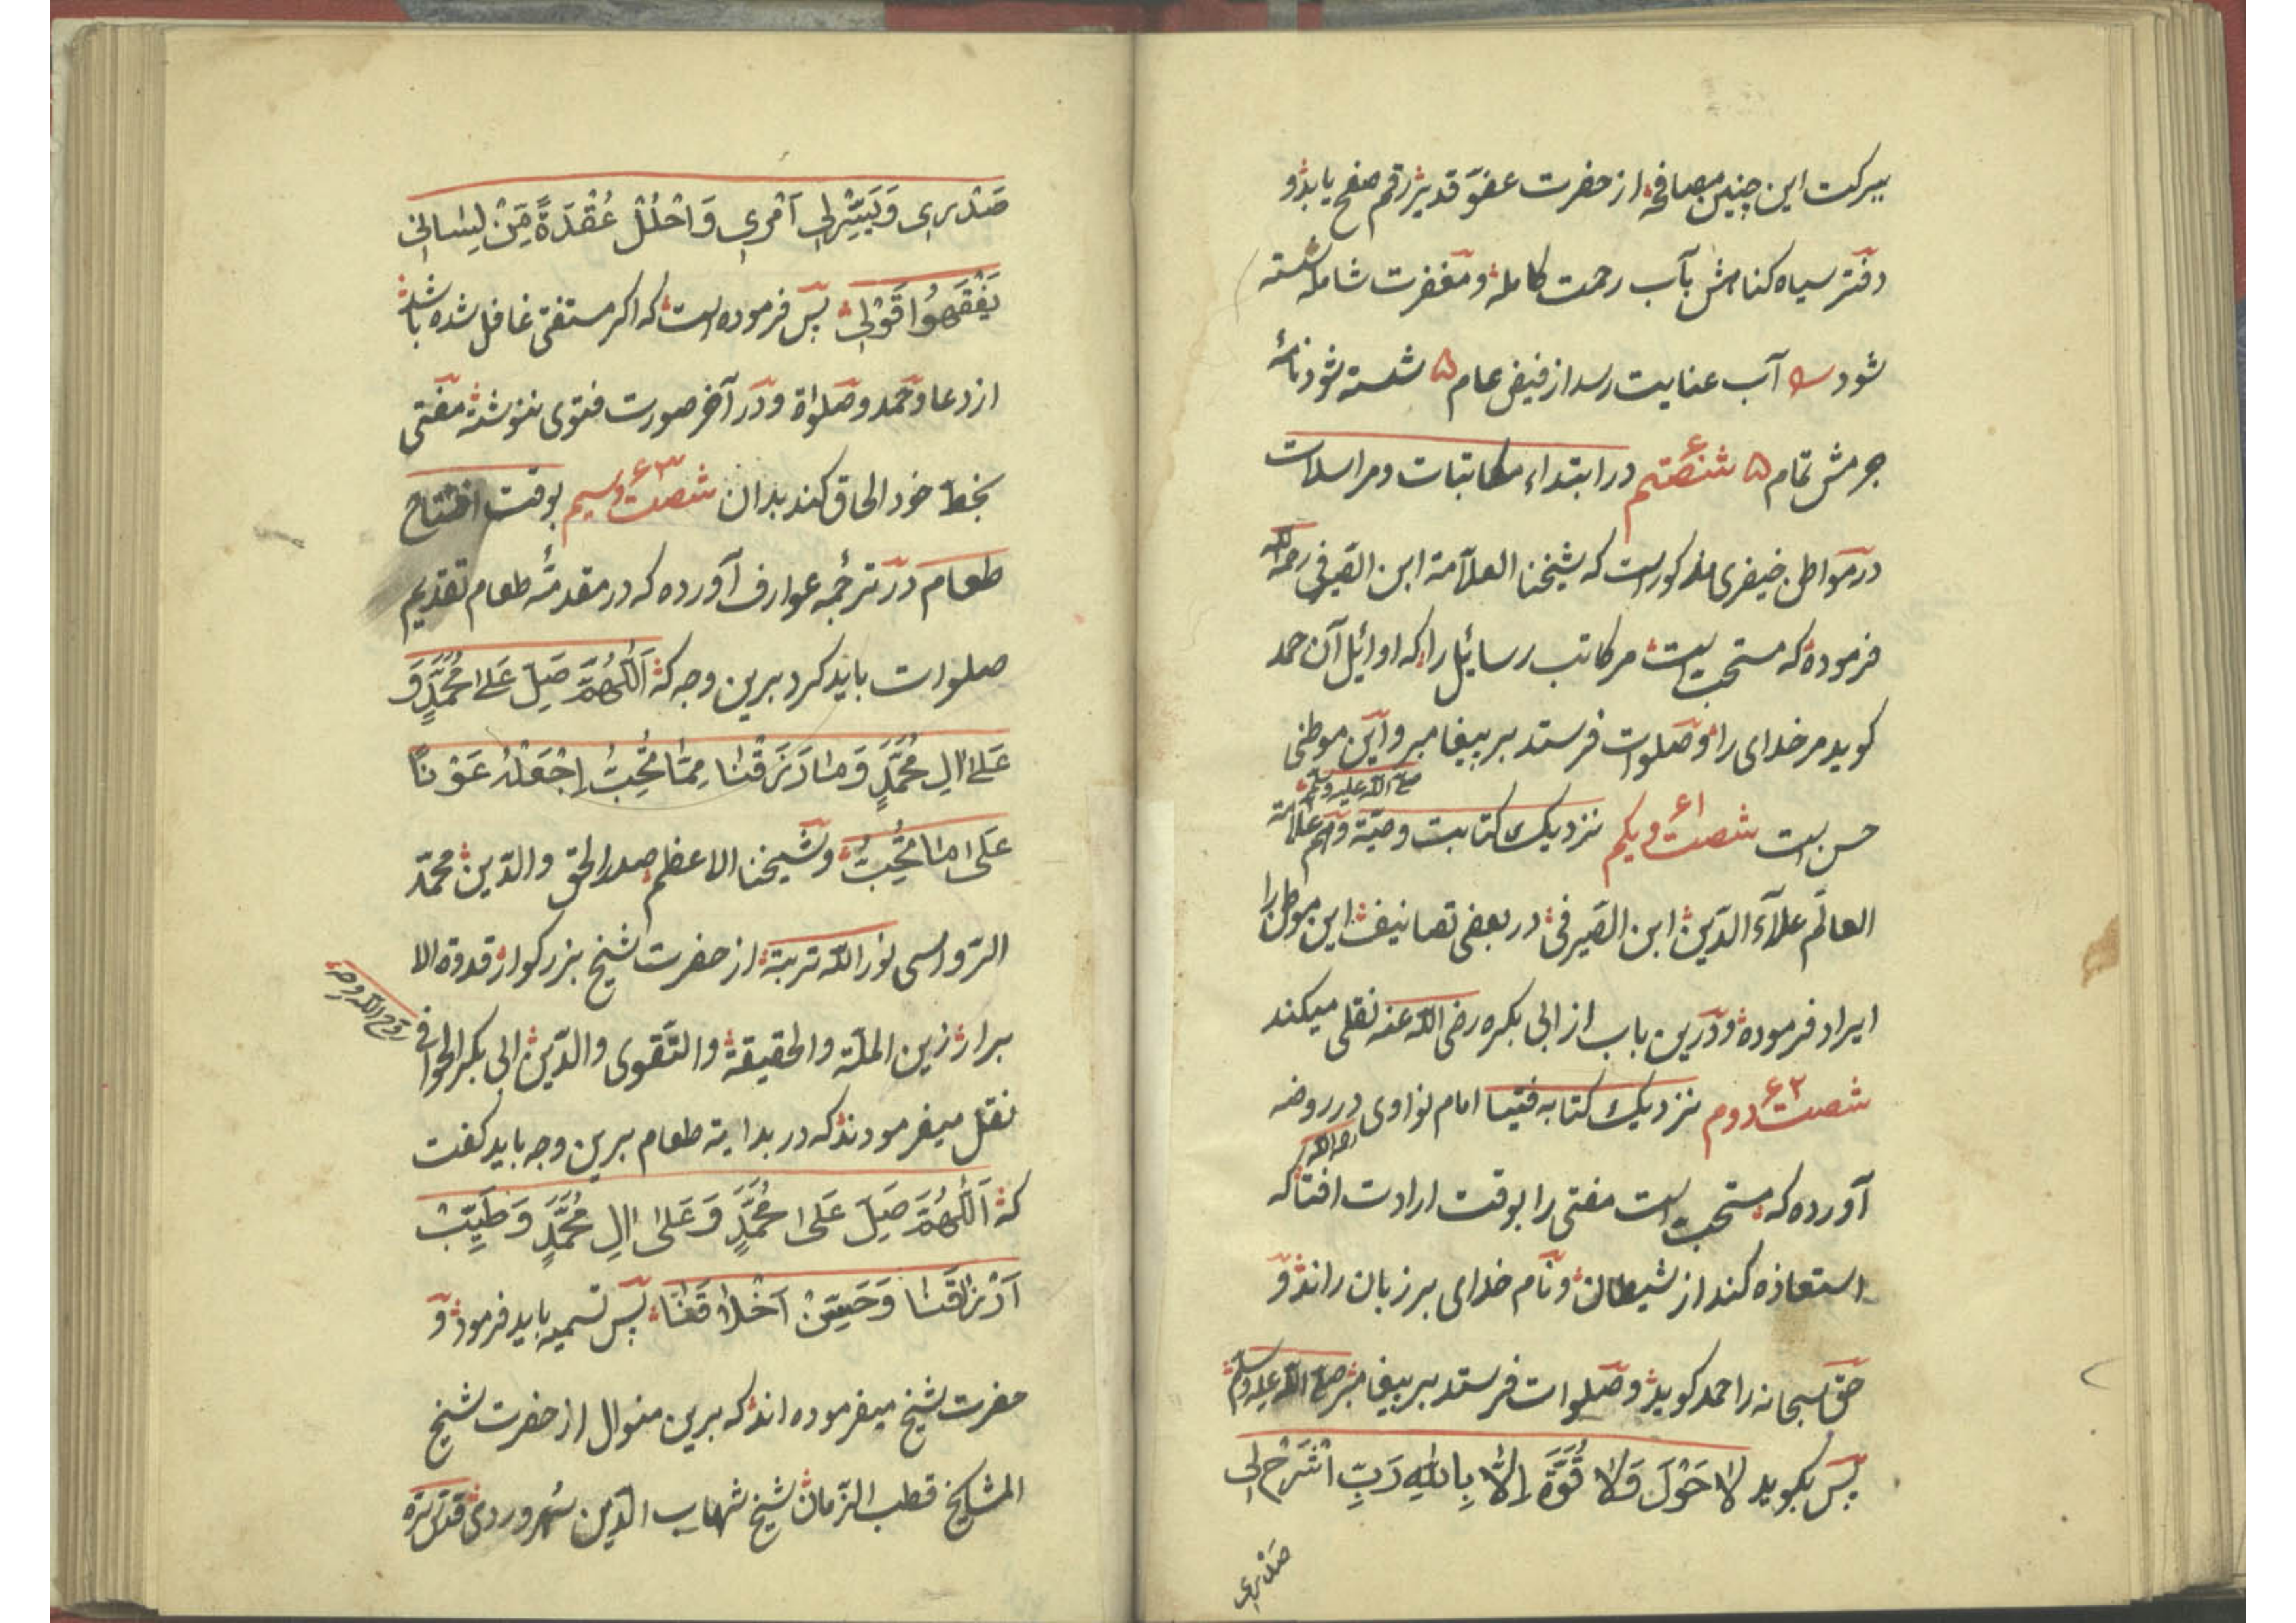 ببرکت این چنین مصافحه از حضرت عفوّ قدیر رقم صفح یابد و
دفتر سیاه کناهش بآب رحمت کامله و مغفرت شامله شسته
شود س آب عنایت رسد از فیض عام ۵ شسته شود نامهٔ
جرمش تمام ۵ شصتم ۶۰ در ابتداء مکاتبات و مراسلات
در مواطن خیضری مذکور است که شیخنا العلاّمة ابن الصّیرفی رحمه الله
فرموده که مستحب است مر کاتب رسائیل را که اوائیل آن حمد
کوید مر خدای را و صلوات فرستد بر پیغامبر و این موطنی
صلی الله علیه وسلم
حسن است شصت و یکم ۶۱ نزدیک کتابت وصیّة و هم علامة
العالم علآء الدّین ابن الصّیرفی در بعضی تصانیف این موطن را
ایراد فرموده و درین باب از ابی بکره رضی الله عنه نقلی میکند
شصت دوم ۶۲ نزدیک کتابه فتیا امام نواوی در روضه
رحمه الله
آورده که مستحب است مفتی را بوقت ارادت افتا که
استعاذه کند از شیطان و نام خدای بر زبان راند و
حق سبحانه را حمد کوید و صلوات فرستد بر پیغامبر صلی الله علیه وسلم
پس بکوید لَا حَوْلَ وَلَا قُوَّةَ اِلَّا بِاللّٰهِ رَبِّ اشْرَحْ لِی
صَدْرِی
صَدْرِی وَیَسِّرْلِی اَمْرِی وَاحْلُلْ عُقْدَةً مِّنْ لِسَانِی
یَفْقَهُوا قَوْلِی پس فرموده است که اکر مستفتی غافل شده باشد
از دعا و حمد و صلواة و در آخر صورت فتوی ننوشته مفتی
بخط خود الحاق کند بدان شصت و سیم ۶۳ بوقت افتتاح
طعام در ترجمه عوارف آورده که در مقدمهٔ طعام تقدیم
صلوات باید کرد برین وجه که اَللّٰهُمَّ صَلِّ عَلٰی مُحَمَّدٍ وَ
عَلٰی اٰلِ مُحَمَّدٍ وَمَا رَزَقْتَنَا مِمَّا نُحِبُّ اِجْعَلْهُ عَوْنًا
عَلٰی مَا تُحِبُّ و شیخنا الاعظم صدر الحق والدّین محمّد
الرّواسی نور الله تربته از حضرت شیخ بزرکوار قدوة الا
برار زین الملّة والحقیقة والتّقوی والدّین ابی بکر الخوافی
روّح الله روحه
نقل میفرمودند که در بدایة طعام برین وجه باید کفت
که اَللّٰهُمَّ صَلِّ عَلٰی مُحَمَّدٍ وَعَلٰی اٰلِ مُحَمَّدٍ وَطَیِّبْ
اَرْزَاقَنَا وَحَسِّنْ اَخْلَاقَنَا پس تسمیه باید فرمود و
حضرت شیخ میفرموده اند که برین منوال از حضرت شیخ
المشایخ قطب الزّمان شیخ شهاب الدّین سُهروردی قدّس سرّه